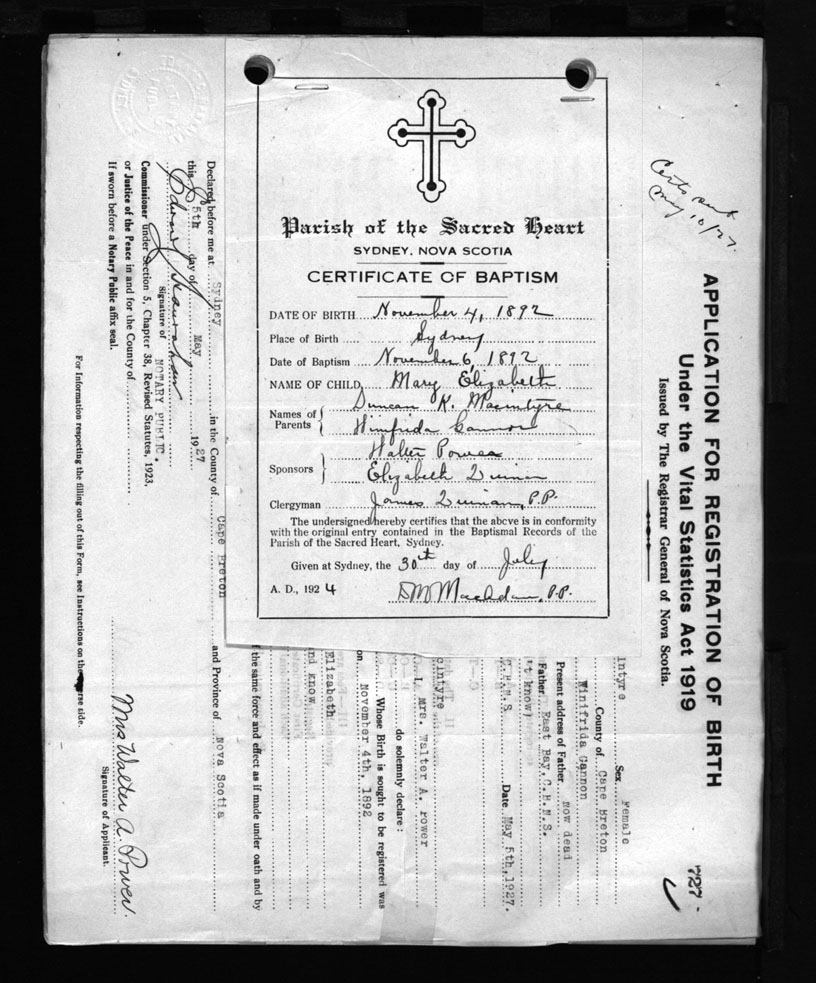 Parish of the Sacred Heart
SYDNEY, NOVA SCOTIA
CERTIFICATE OF BAPTISM
DATE OF BIRTH November 4, 1892
Place of Birth Sydney
Date of Baptism November 6, 1892
NAME OF CHILD Mary Elizabeth
Names of Parents Duncan K. Macintyre
Winifrida Cannon
Sponsors Walter Power
Elizabeth Quinan
Clergyman James Quinan, P.P.
The undersigned hereby certifies that the above is in conformity
with the original entry contained in the Baptismal Records of the
Parish of the Sacred Heart, Sydney.
Given at Sydney, the 30th day of July
A. D., 1924 D M MacAdam, P.P.
Certs sent
May 10/27.
APPLICATION FOR REGISTRATION OF BIRTH
Under the Vital Statistics Act 1919
Issued by The Registrar General of Nova Scotia.
787-
intyre Sex Female
County of Cape Breton
Winifrida Cannon
Present address of Father Now dead
Father East Bay, C.B.N.S.
t know)
C.B.N.S. Date May 5th, 1927.
cintyre
I, Mrs. Walter A. Power
do solemnly declare:
Whose Birth is sought to be registered was
on November 4th, 1892
Elizabeth
nd know
f the same force and effect as if made under oath and by
Declared before me at Sydney in the County of Cape Breton and Province of Nova Scotia
this 5th day of May 1927
Signature of NOTARY PUBLIC.
Commissioner under Section 5, Chapter 38, Revised Statutes, 1923,
or Justice of the Peace in and for the County of
If sworn before a Notary Public affix seal.
Mrs Walter A. Power.
Signature of Applicant.
For Information respecting the filling out of this Form, see Instructions on the reverse side.